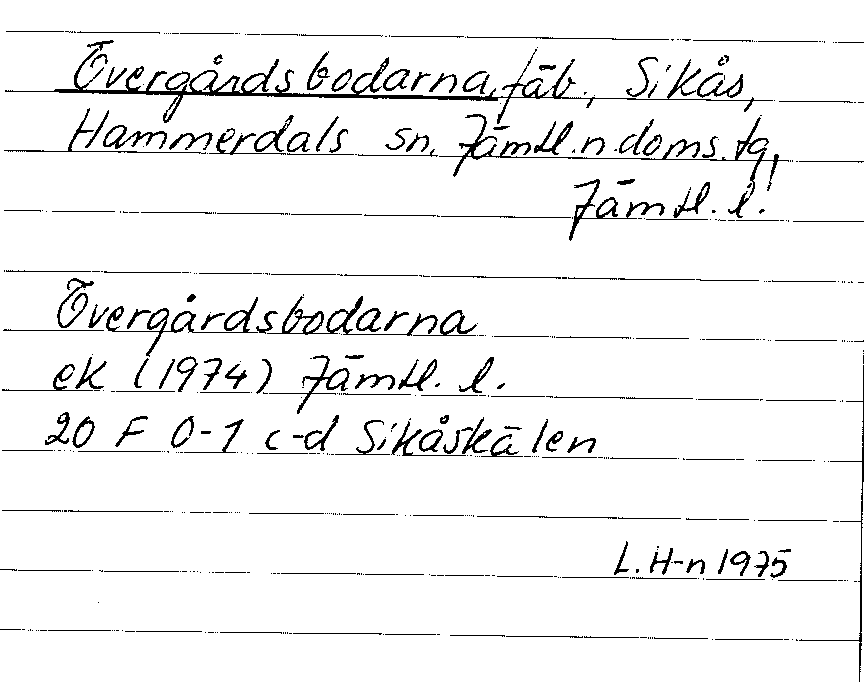 Övergårdsbodarna, fäb., Sikås,
Hammerdals sn. Jämtl. n. doms. tg,
Jämtl. l.
Övergårdsbodarna
ek (1974) Jämtl. l.
20 F 0-1 c-d Sikåskälen
L. H-n 1975